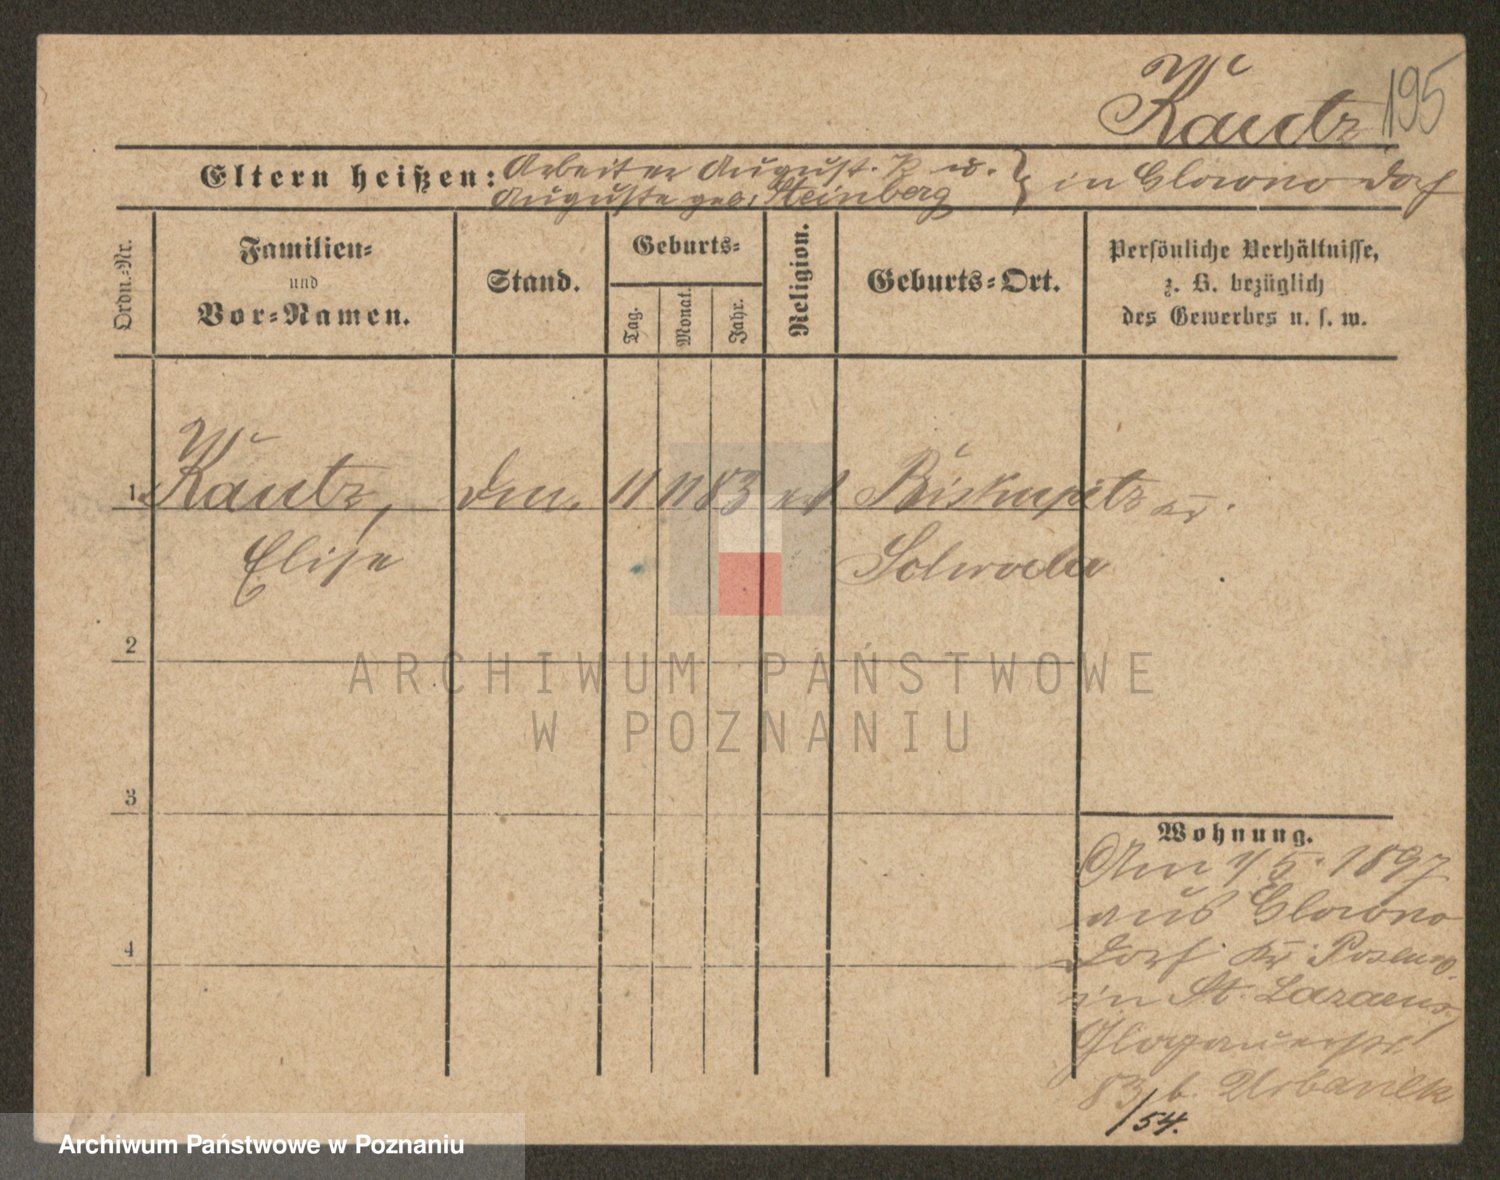 Kautz 195
Eltern heißen: Arbeiter August K u.
Auguste geb. Steinberg } in Glowno Dorf
Ordn.-Nr.
Familien-
und
Vor-Namen.
Stand.
Geburts-
Tag.
Monat.
Jahr.
Religion.
Geburts-Ort.
Persönliche Verhältnisse,
z. B. bezüglich
des Gewerbes u. s. w.
1 Kautz, 11 11 83 Biskupitz Kr.
Elise
2
3
4
Wohnung.
Am 1/5. 1897
aus Glowno
Dorf Kr. Posen
in St. Lazarus
Glogauerstr
83 b. Urbanek
/54.
ARCHIWUM PAŃSTWOWE
W POZNANIU
Archiwum Państwowe w Poznaniu